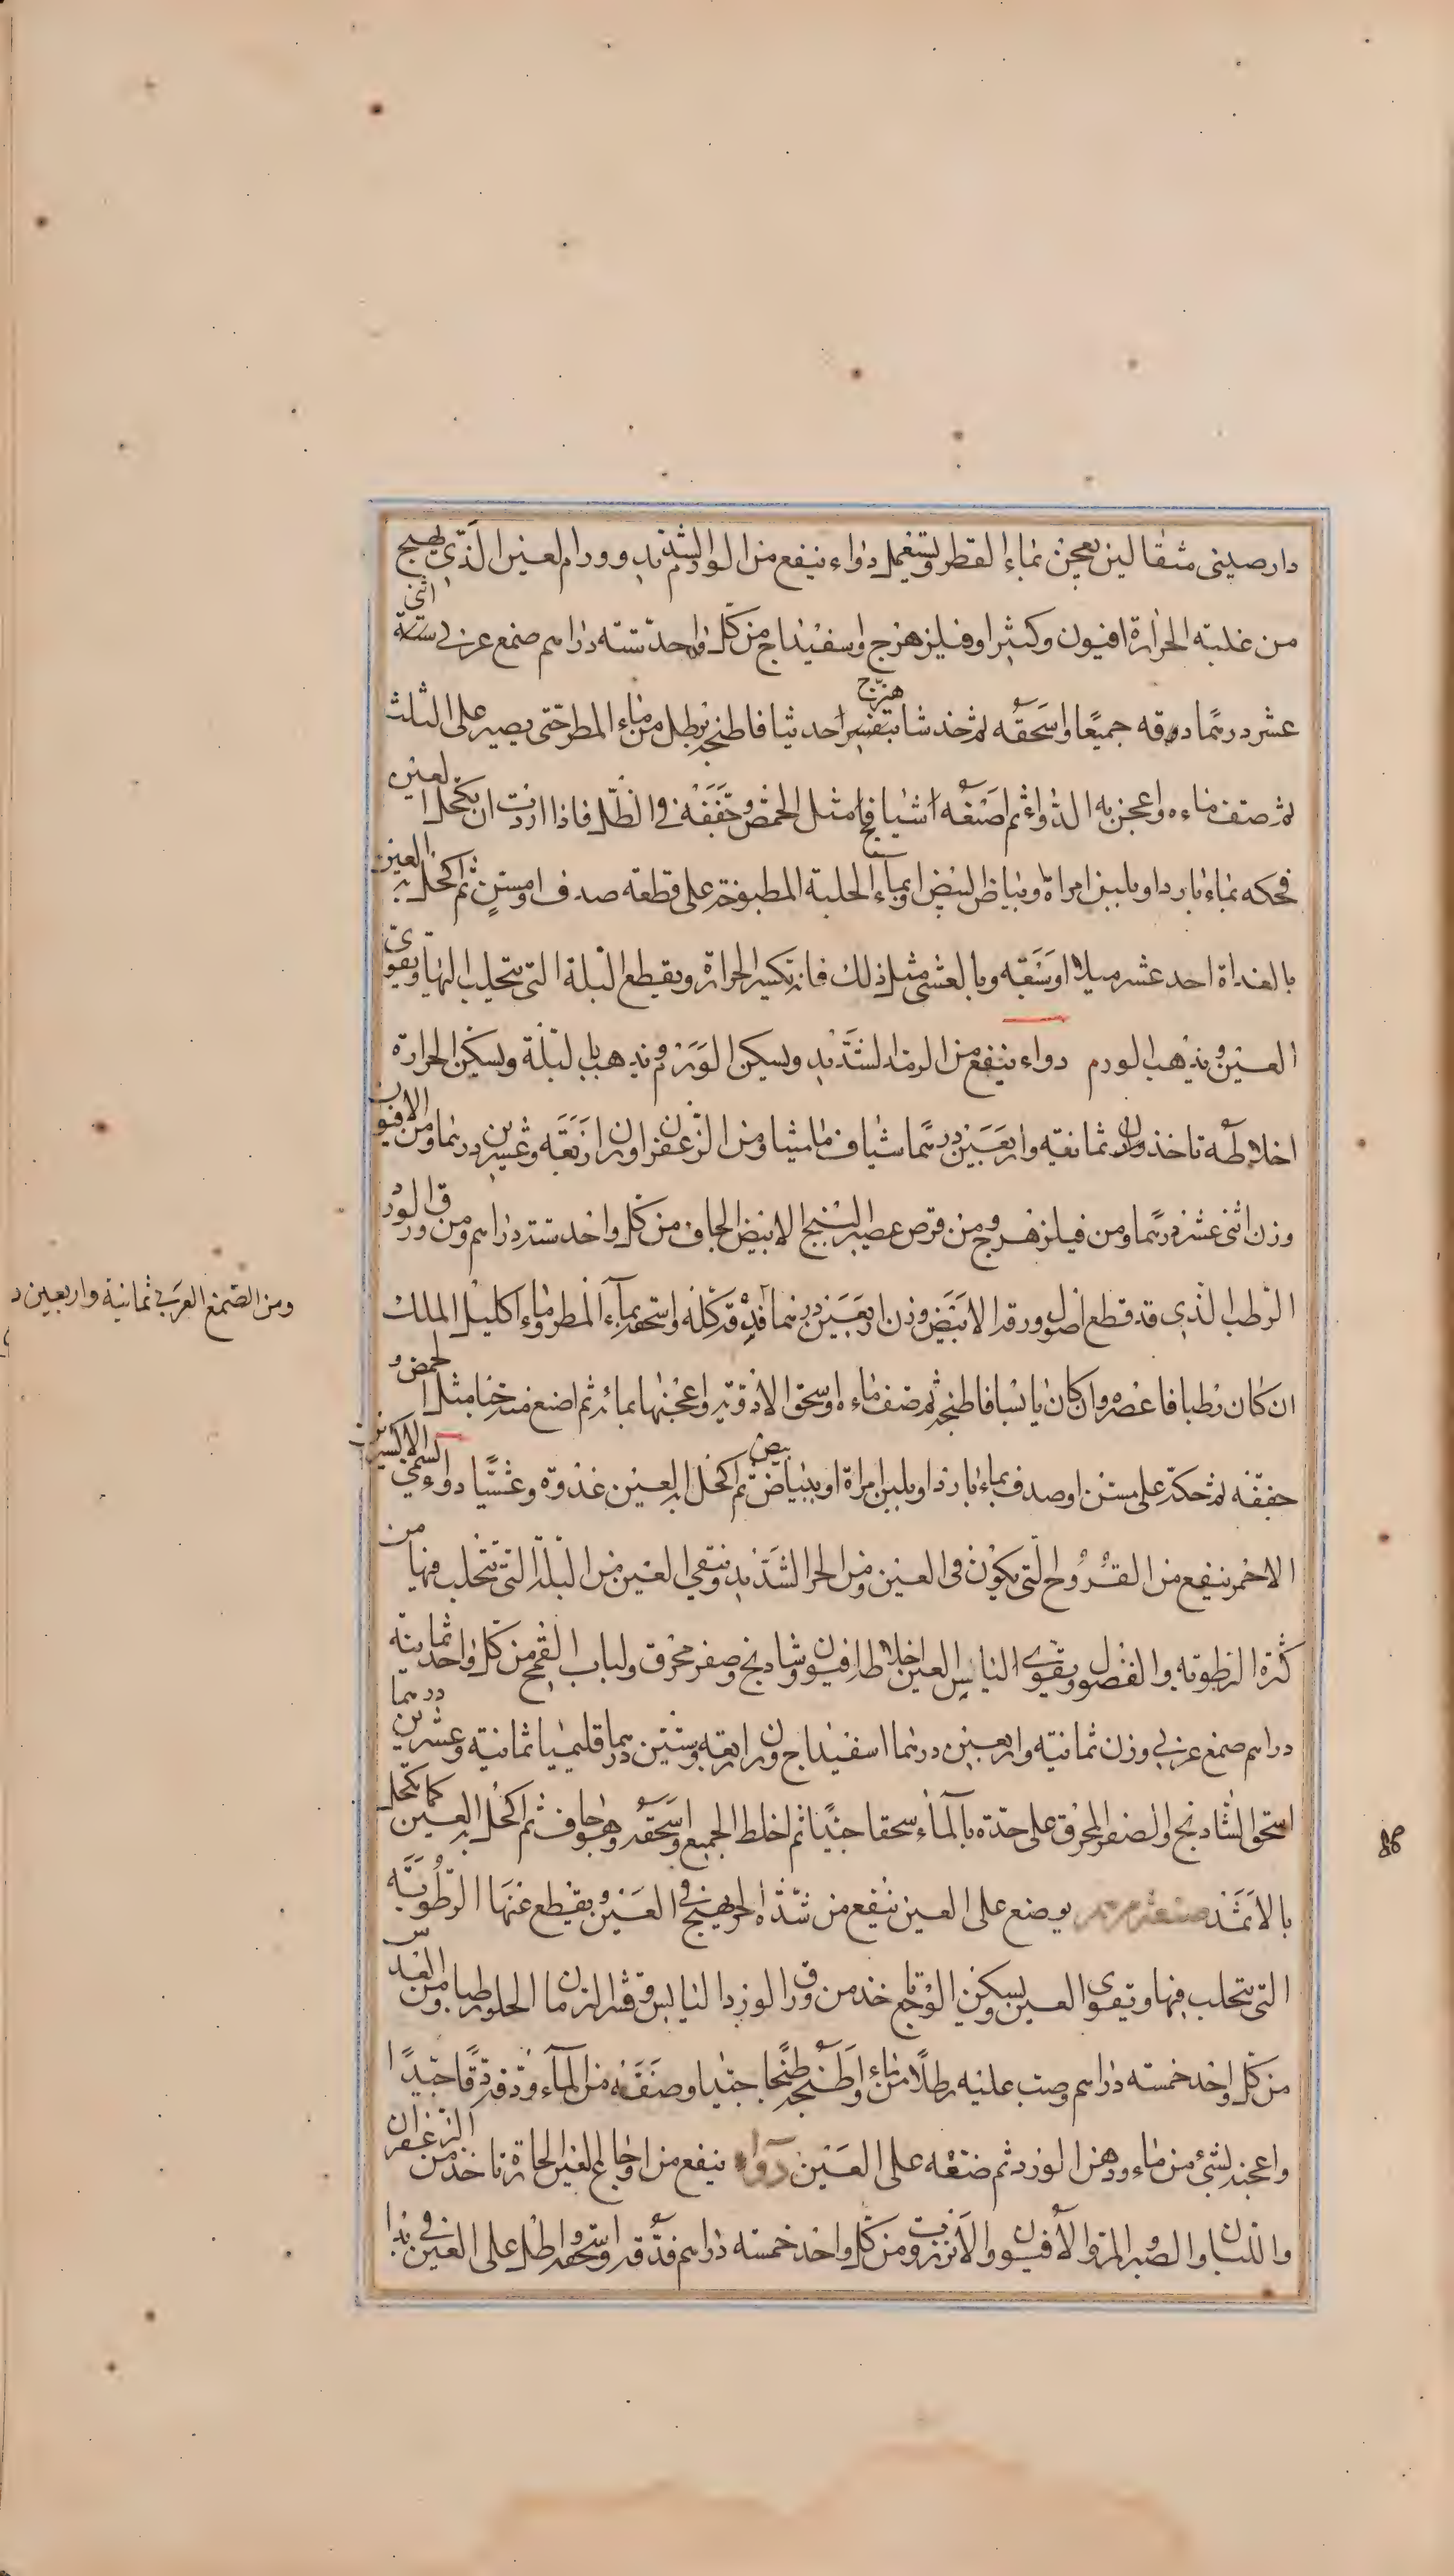 دارصيني مثقالين يعجن بماء القطر ويستعمل دواء ينفع من الورم الشديد وورام العين الذي يهيج
من غلبة الحرارة افيون وكثيرا وفيلزهزج واسفيداج من كل واحد ستة دراهم صمغ عربي اثنى ستة
عشر درهما دقه جميعا واسحقه ثم خذ شاهبزج احد ثيا فاطبخه برطل من ماء المطر حتى يصير على الثلث
ثم صف ماءه واعجن به الدواء ثم اصنعه اشيافا مثل الحمص وجففه في الظل فاذا اردت ان تكحل العين
فحكه بماء بارد او بلبن امراة وبياض البيض او بماء الحلبة المطبوخة على قطعة صدف او مسن ثم اكحل به العين
بالغداة احد عشر ميلا او سبعة وبالعشي مثل ذلك فانه يكسر الحرارة ويقطع البلة التي يتحلب اليها ويقوى
العين ويذهب الورم دواء ينفع من الرمد الشديد ويسكن الورم ويذهب بالبلة ويسكن الحرارة
اخلاطه تاخذ وزن ثمانية واربعين درهما شياف ماميثا ومن الزعفران وزن اربعة وعشرين درهما ومن الافيون
وزن اثنى عشر درهما ومن فيلزهرج ومن قرص عصير البنج الابيض الجاف من كل واحد ستة دراهم ومن ورق الورد
الرطب الذي قد قطع اصول ورقه الابيض وزن اربعين درهما فدقه كله واسحقه بماء المطر وماء اكليل الملك
ومن الصمغ العربي ثمانية واربعين د
ان كان رطبا فاعصره وان كان يابسا فاطبخه ثم صف ماءه واسحق الادوية واعجنها بمائه ثم اصنع منه حبا مثل الحمص و
جففه ثم حكه على مسن او صدف بماء بارد او بلبن امراة او ببياض بيض ثم اكحل به العين غدوة وعشيا دواء يسمى الاكسيرين
الاحمر ينفع من القروح التي يكون في العين ومن الحر الشديد وينقي العين من البلة التي تتحلب فيها من
كثرة الرطوبة والفضول ويقوي الناس العين اخلاطه افيون وشادنج وصفر محرق ولباب القمح من كل واحد ثمانية
دراهم صمغ عربي وزن ثمانية واربعين درهما اسفيداج وزن اربعة وستين درهما قليميا ثمانية وعشرين درهما
اسحق الشادنج والصفر المحرق على حدة بالماء سحقا جيدا ثم اخلط الجميع واسحقه وهو جاف ثم اكحل به العين كما تكحل
بالاثمد يوضع على العين ينفع من شدة الحر يهيج في العين ويقطع عنها الرطوبة
التي يتحلب فيها وتقوى العين ويسكن الوجع تاخذ من ورق الورد اليابس وقشر الرمان الحلو رطبا ومن العدس
من كل واحد خمسة دراهم وصب عليه رطلا من ماء واطبخه طبخا جيدا وصفه من الماء ودقه دقا جيدا
واعجنه بشئ من ماء ودهن الورد ثم ضعه على العين دواء ينفع من اوجاع العين الحارة تاخذ من الزعفران
واللبان والصبر والمر والافيون والانزروت من كل واحد خمسة دراهم فدقه واسحقه واطل على العين في بدا